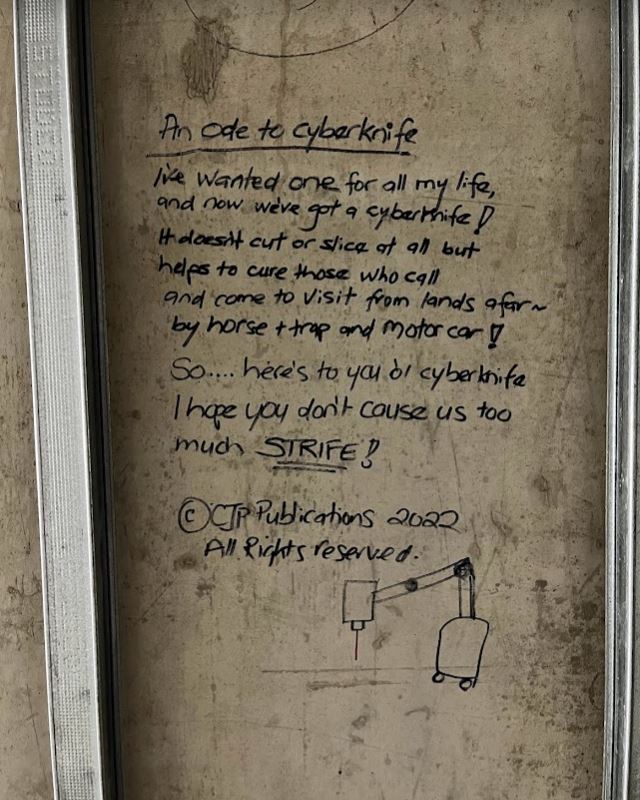 An ode to cyberknife
I've wanted one for all my life,
and now we've got a cyberknife!
It doesn't cut or slice at all but
helps to cure those who call
and come to visit from lands afar~
by horse + trap and motor car!
So.... here's to you ol cyberknife
I hope you don't cause us too
much STRIFE!
© CJP Publications 2022
All Rights reserved.